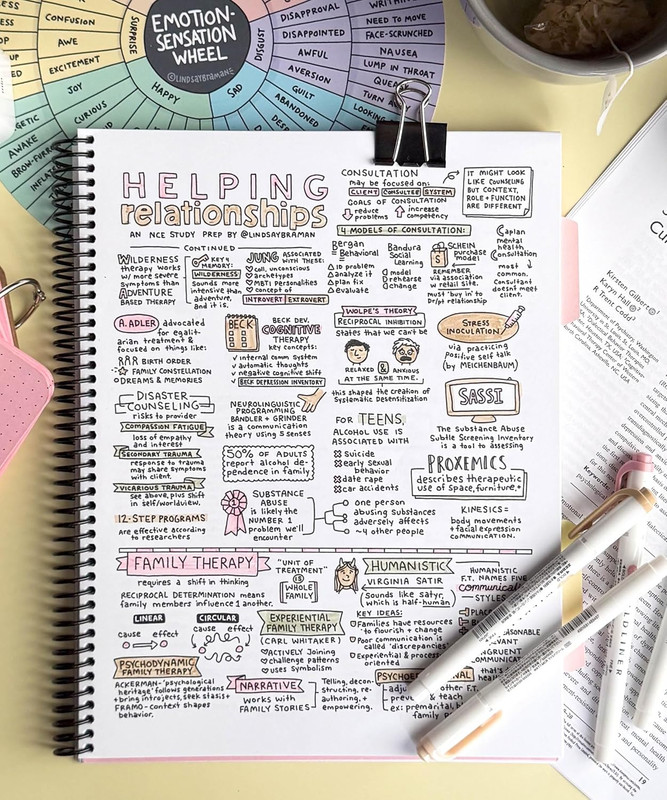 EMOTION-
SENSATION
WHEEL
@LINDSAYBRAMAN
SURPRISE
HAPPY
SAD
DISGUST
CONFUSION
AWE
EXCITEMENT
JOY
CURIOUS
AWAKE
DISAPPROVAL
DISAPPOINTED
AWFUL
AVERSION
GUILT
ABANDONED
NEED TO MOVE
FACE-SCRUNCHED
NAUSEA
LUMP IN THROAT
HELPING
relationships
AN NCE STUDY PREP BY @LINDSAYBRAMAN
CONTINUED
CONSULTATION
may be focused on:
CLIENT CONSULTEE SYSTEM
GOALS OF CONSULTATION
reduce problems
increase competency
IT MIGHT LOOK
LIKE COUNSELING
BUT CONTEXT,
ROLE + FUNCTION
ARE DIFFERENT.
WILDERNESS
therapy works
w/ more severe
symptoms than
ADVENTURE
BASED THERAPY
KEY 4
MEMORY:
WILDERNESS
sounds more
intensive than
adventure,
and it is.
JUNG ASSOCIATED
WITH THESE:
coll. unconscious
archetypes
MBTI Personalities
concept of
INTROVERT EXTROVERT
4 MODELS OF CONSULTATION:
Bergan
= Behavioral
ID problem
analyze it
plan fix
evaluate
Bandura
Social
Learning
model
rehearse
change
SCHEIN
purchase
model
REMEMBER
via association
w/ retail site.
must 'buy in' to
Dr/pt relationship
Caplan
mental
health
Consultation
most
common.
Consultant
doesnt meet
client.
A. ADLER advocated
for egalit-
arian treatment &
focused on things like:
BIRTH ORDER
FAMILY CONSTELLATION
DREAMS & MEMORIES
BECK
BECK DEV.
COGNITIVE
THERAPY
key concepts:
internal comm system
automatic thoughts
negative cognitive shift
BECK DEPRESSION INVENTORY
WOLPE'S THEORY
RECIPROCAL INHIBITION
states that we can't be
RELAXED & ANXIOUS
AT THE SAME TIME.
this shaped the creation of
Systematic Desensitization
STRESS
INOCULATION
via practicing
positive self talk
(by MEICHENBAUM)
DISASTER
COUNSELING
risks to provider
COMPASSION FATIGUE
loss of empathy
and interest
SECONDARY TRAUMA
response to trauma
may share symptoms
with client.
VICARIOUS TRAUMA
see above, plus shift
in self/worldview.
12-STEP PROGRAMS
are effective according
to researchers
NEUROLINGUISTIC
PROGRAMMING
BANDLER + GRINDER
is a communication
theory using 5 senses
50% OF ADULTS
report alcohol de-
pendence in family
SUBSTANCE
ABUSE
is likely the
NUMBER 1
problem we'll
encounter
one person
abusing substances
adversely affects
~4 other people
FOR TEENS,
ALCOHOL USE IS
ASSOCIATED WITH
Suicide
early sexual
behavior
date rape
car accidents
SASSI
The Substance Abuse
Subtle Screening Inventory
is a tool to assessing
PROXEMICS
describes therapeutic
use of space, furniture, +
KINESICS =
body movements
+ facial expression
COMMUNICATION.
FAMILY THERAPY
requires a shift in thinking
RECIPROCAL DETERMINATION means
family members influence 1 another.
"UNIT OF
TREATMENT"
IS
WHOLE
FAMILY
HUMANISTIC
VIRGINIA SATIR
Sounds like satyr,
which is half-human.
KEY IDEAS:
Families have resources
to flourish + change
Poor communication is
called 'discrepancies'
Experiential & process
oriented
HUMANISTIC
F.T. NAMES FIVE
STYLES
LINEAR
cause effect
CIRCULAR
cause effect
EXPERIENTIAL
FAMILY THERAPY
(CARL WHITAKER)
Actively Joining
challenge patterns
uses Symbolism
PSYCHODYNAMIC
FAMILY THERAPY
ACKERMAN-'psychological
heritage' follows generations
+ bring introjects, seek stasis +
FRAMO-context shapes
behavior.
NARRATIVE
Works with
FAMILY STORIES
Telling, decon-
structing, re-
authoring, +
empowering.
other F.T.
& teach
ex: premarital,
family
Kirsten Gilbert
Karyn Hall
R Trent Codd
19